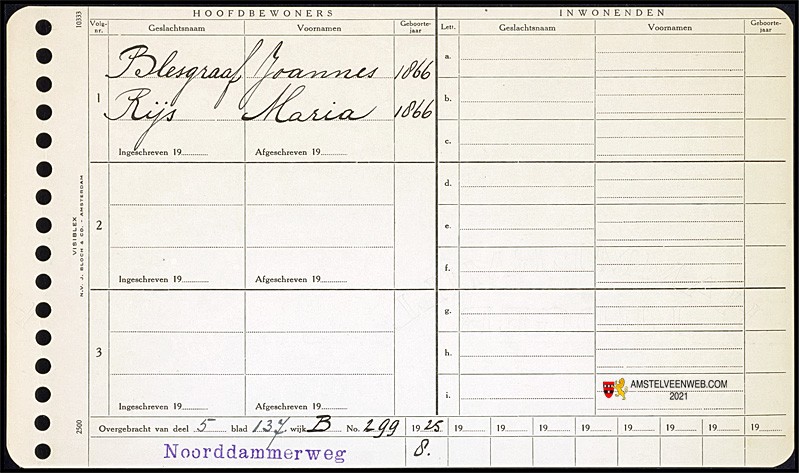 10333
HOOFDBEWONERS
INWONENDEN
Volg-nr. Geslachtsnaam Voornamen Geboorte-jaar Lett. Geslachtsnaam Voornamen Geboorte-jaar
1 Blesgraaf Joannes 1866
Rijs Maria 1866
Ingeschreven 19 Afgeschreven 19
2
Ingeschreven 19 Afgeschreven 19
3
Ingeschreven 19 Afgeschreven 19
a.
b.
c.
d.
e.
f.
g.
h.
i.
AMSTELVEENWEB.COM
2021
VISIBLEX
N.V. J. BLOCH & CO. - AMSTERDAM
2500
Overgebracht van deel 5 blad 137 wijk B No. 299 1925 19 19 19 19 19 19 19 19
Noorddammerweg 8.